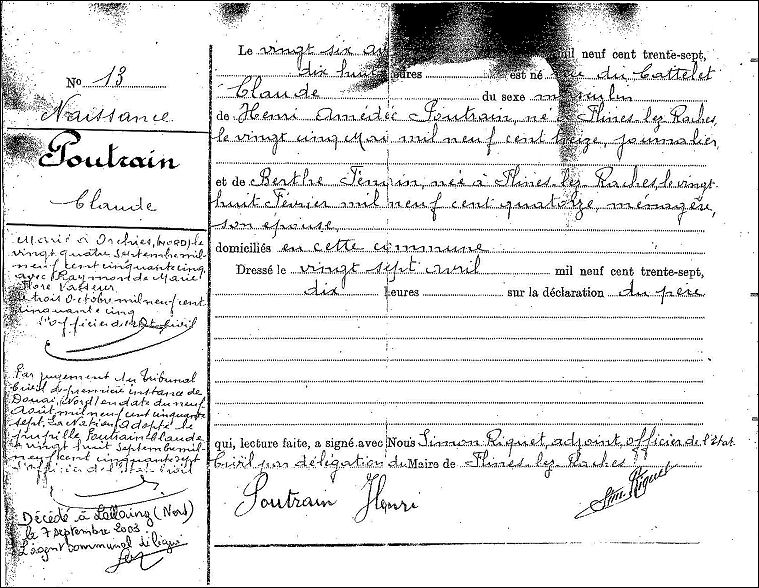 No 13
Naissance
Poutrain
Claude
Marié à Orchies, (NORD) le
vingt quatre Septembre mil
neuf cent cinquante cinq
avec Raymonde Marie
Flore Vasseur
le trois Octobre mil neuf cent
cinquante cinq
L'officier de l'Etat Civil
Par jugement du Tribunal
Civil de première instance de
Douai (Nord) en date du neuf
Août mil neuf cent cinquante
sept, La Nation adopte le
pupille Poutrain Claude
le vingt huit Septembre mil
neuf cent cinquante sept
L'officier de l'Etat Civil
Décédé à Lallaing (Nord)
le 7 septembre 2003
L'agent communal délégué
Le vingt six mil neuf cent trente-sept,
dix huit heures est né rue du Cattelet
Claude du sexe masculin
de Henri Amédée Poutrain, né à Flines lez Raches,
le vingt cinq Mai mil neuf cent treize, journalier,
et de Berthe née à Flines lez Raches le vingt
huit Février mil neuf cent quatorze, ménagère,
son épouse
domiciliés en cette commune
Dressé le vingt sept avril mil neuf cent trente-sept,
dix heures sur la déclaration du père
qui, lecture faite, a signé avec Nous Simon Riquet adjoint, officier de l'état
Civil par délégation du Maire de Flines lez Raches
Poutrain Henri
Sim. Riquet